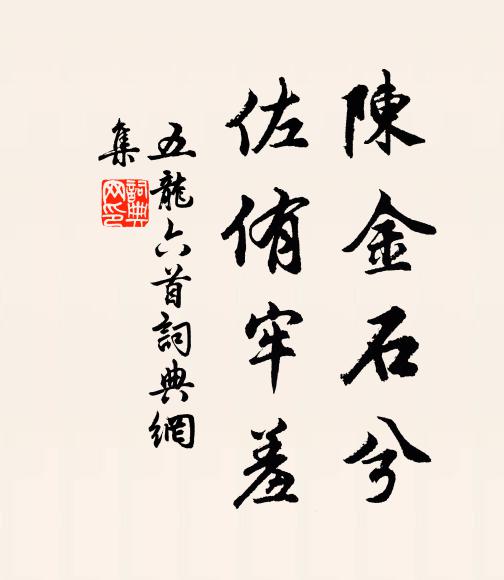 陳金石兮
佐侑牢羞
五龍六首詞典網
集
詞典网印